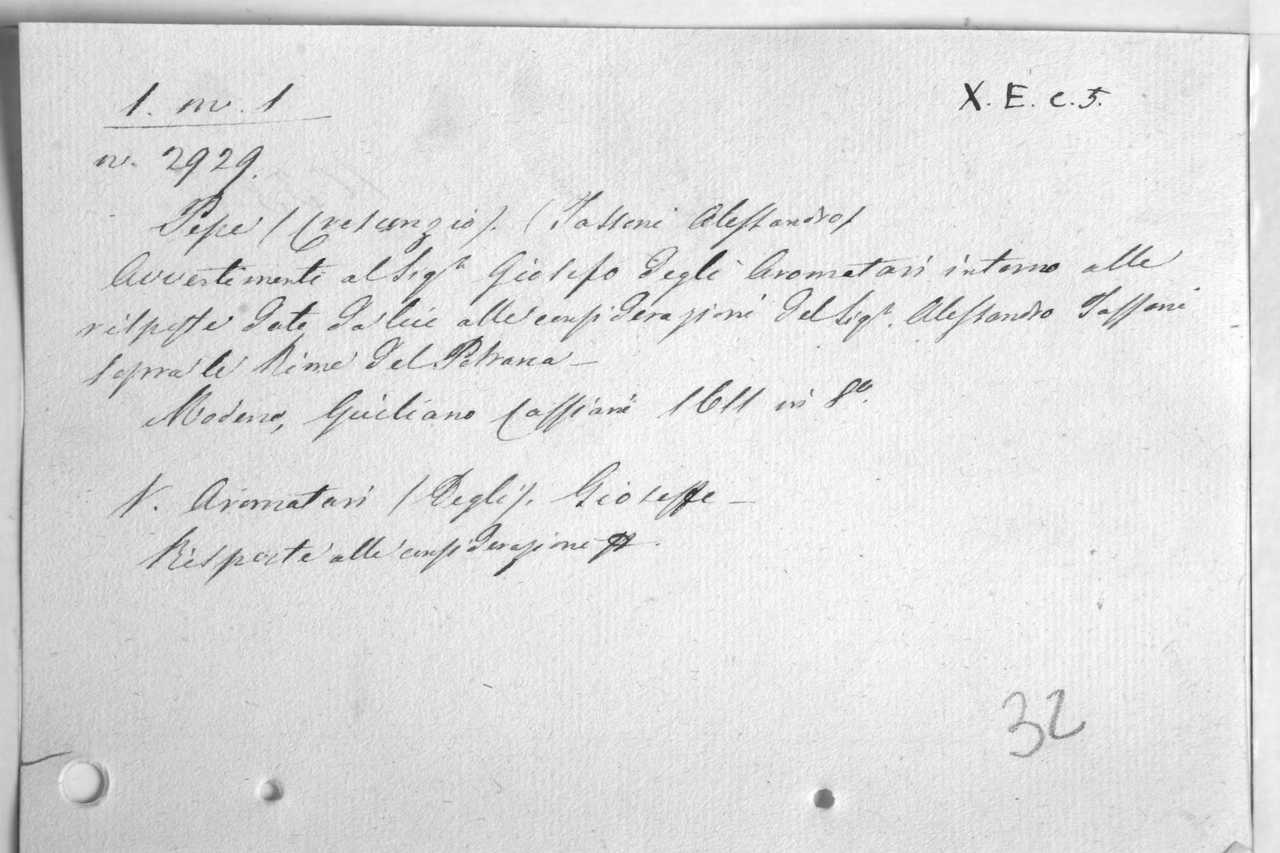 1. m. 1
X. E. c. 5.
n. 2929.
Pepe (Crescenzio). (Tassoni Alessandro)
Avvertimenti al Sigr Giosefo degli Aromatari intorno alle
risposte date da lui alle considerazioni del Sigr. Alessandro Tassoni
sopra le Rime del Petrarca —
Modena, Giuliano Cassiani 1611 in 8o.
V. Aromatari (Degli). Gioseffe —
Risposte alle considerazione
32